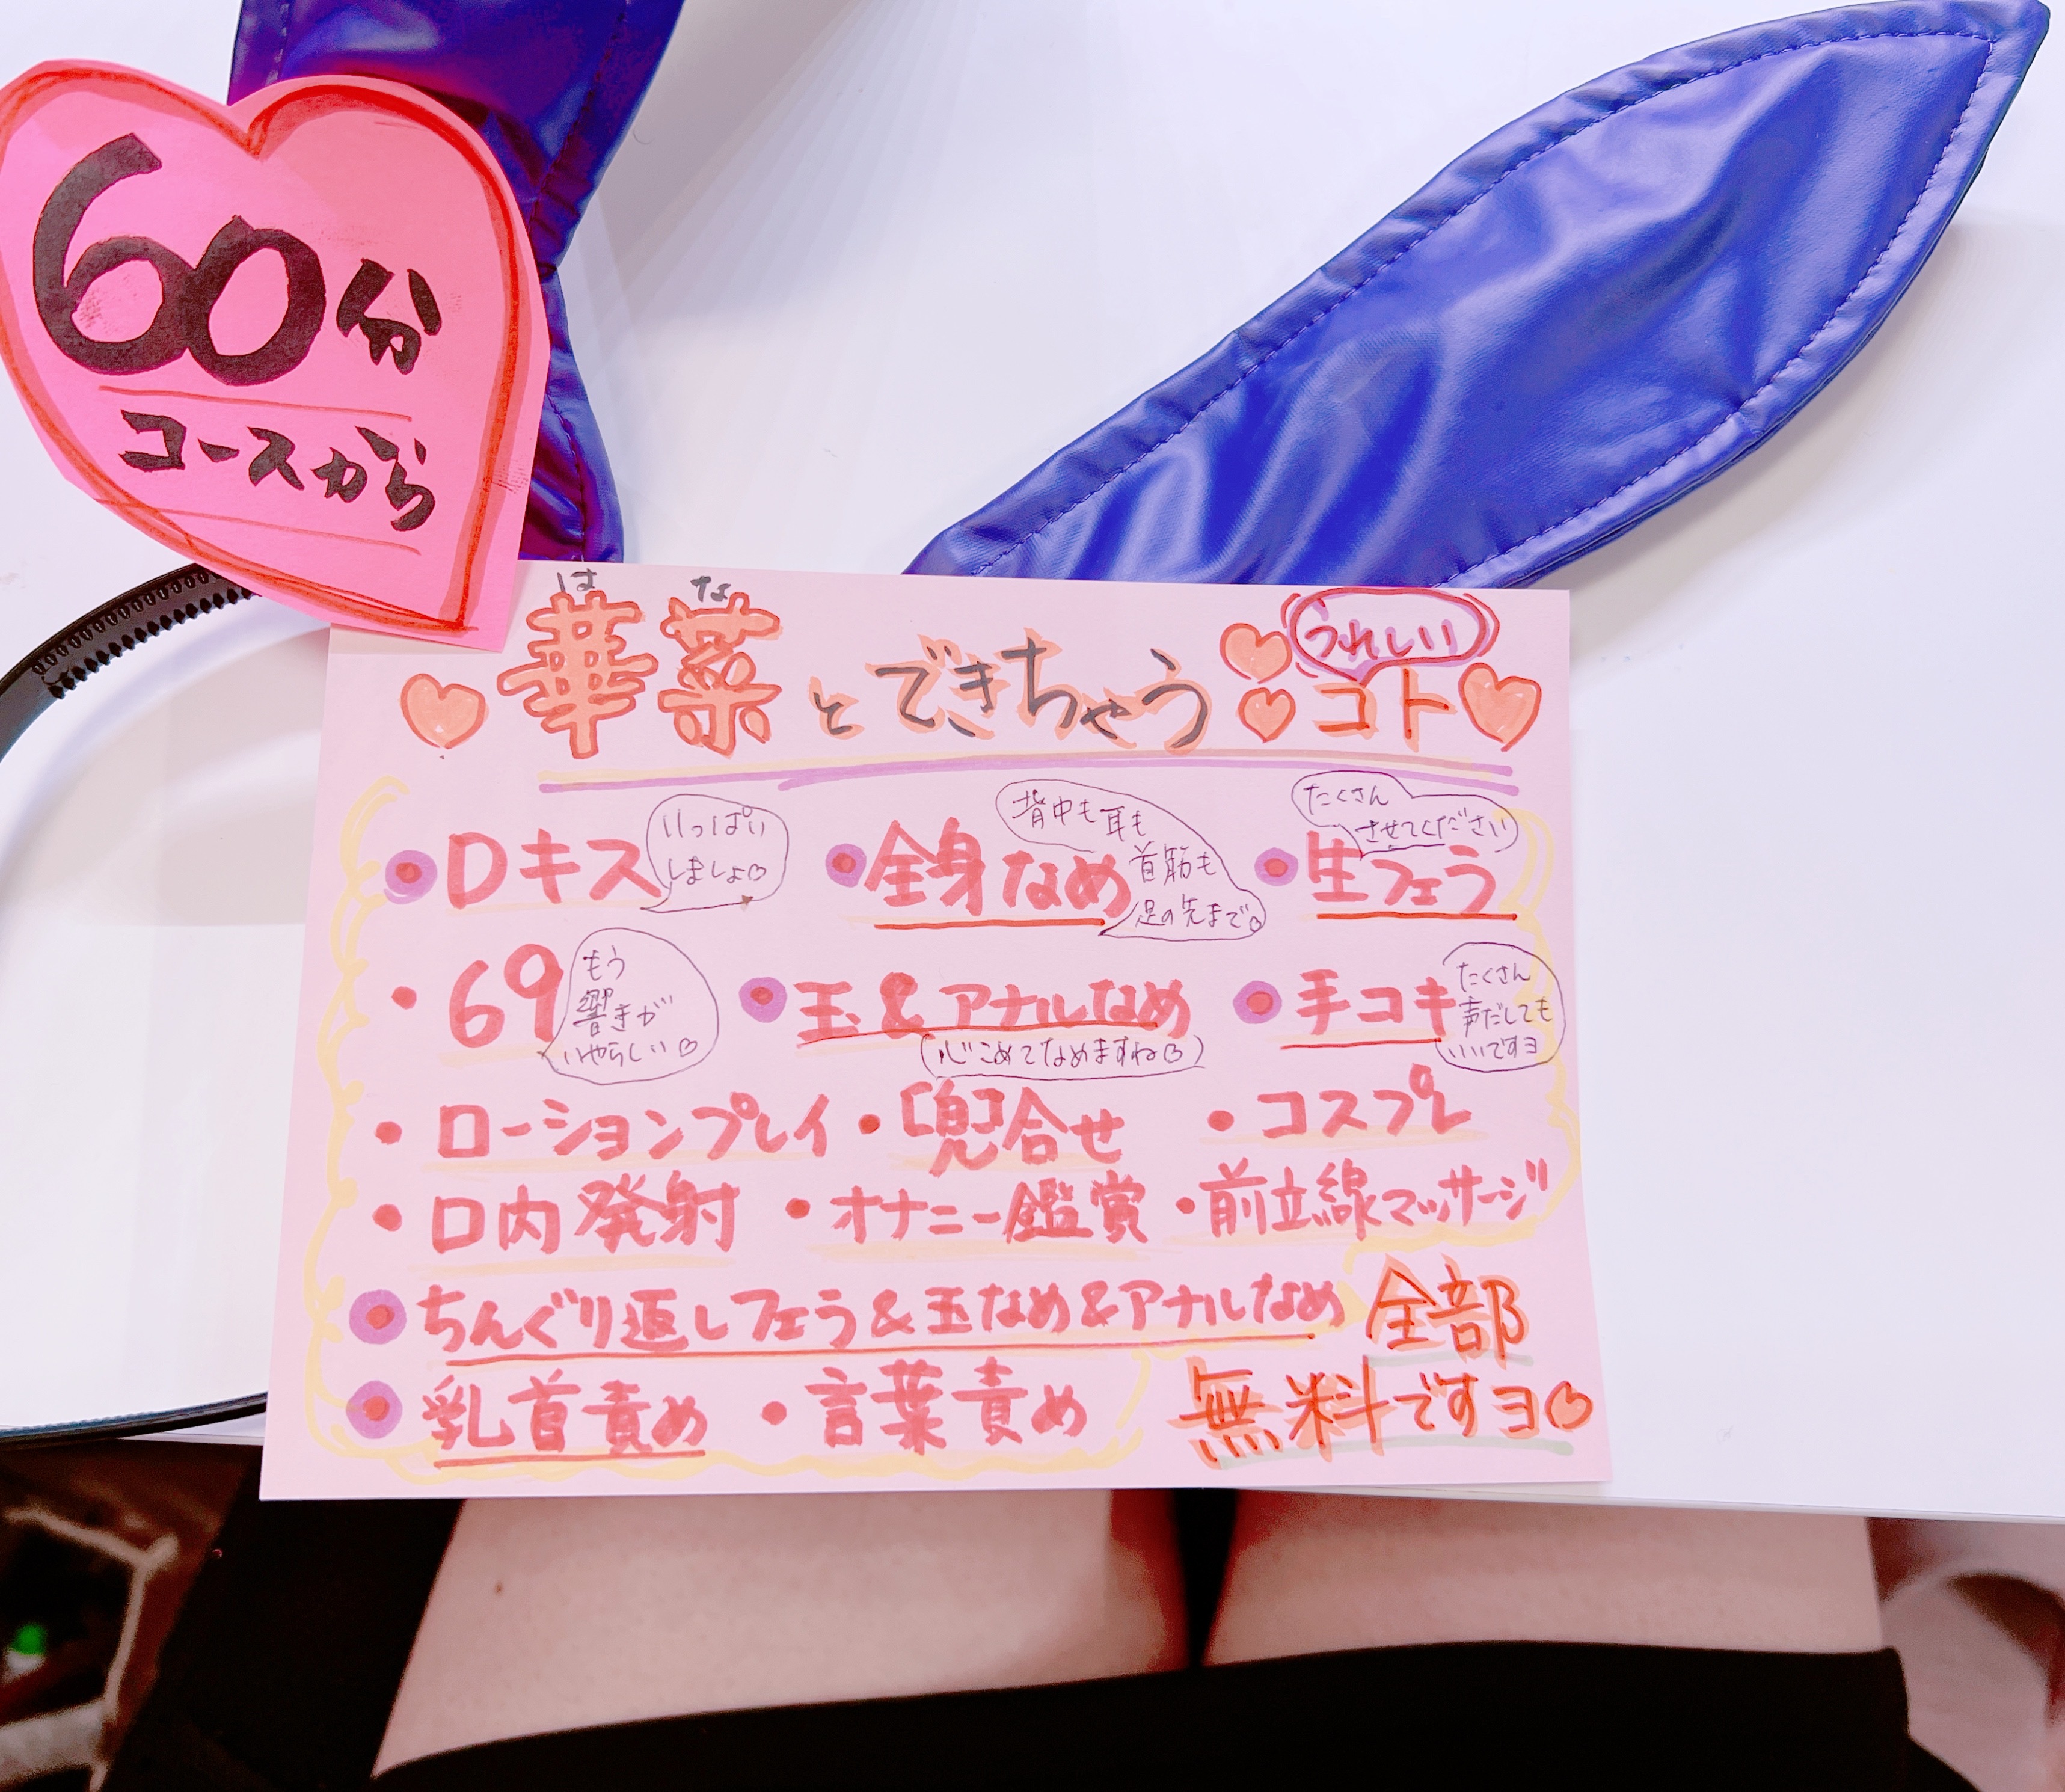 60分
コースから
はな
華菜とできちゃう うれしい コト
Dキス いっぱいしましょ
全身なめ 背中も耳も首筋も足の先まで
生フェラ たくさんさせてください
69 もう響きがいやらしい
玉&アナルなめ 心こめてなめますね
手コキ たくさん声だしてもいいですヨ
・ローションプレイ ・[兜]合せ ・コスプレ
・口内発射 ・オナニー鑑賞 ・前立線マッサージ
ちんぐり返しフェラ&玉なめ&アナルなめ
乳首責め ・言葉責め
全部
無料ですヨ